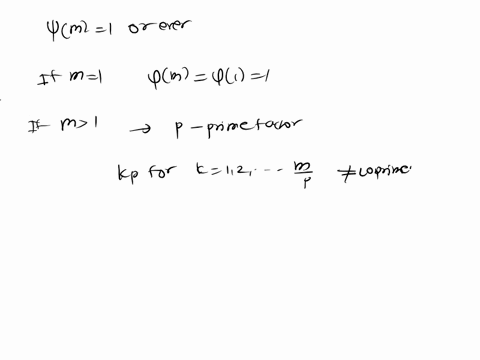 φ(m) = 1 or ever
If m=1 φ(m) = φ(1) = 1
If m>1 → p - prime factor
kp for k=1,2, ... m/p ≠ coprime